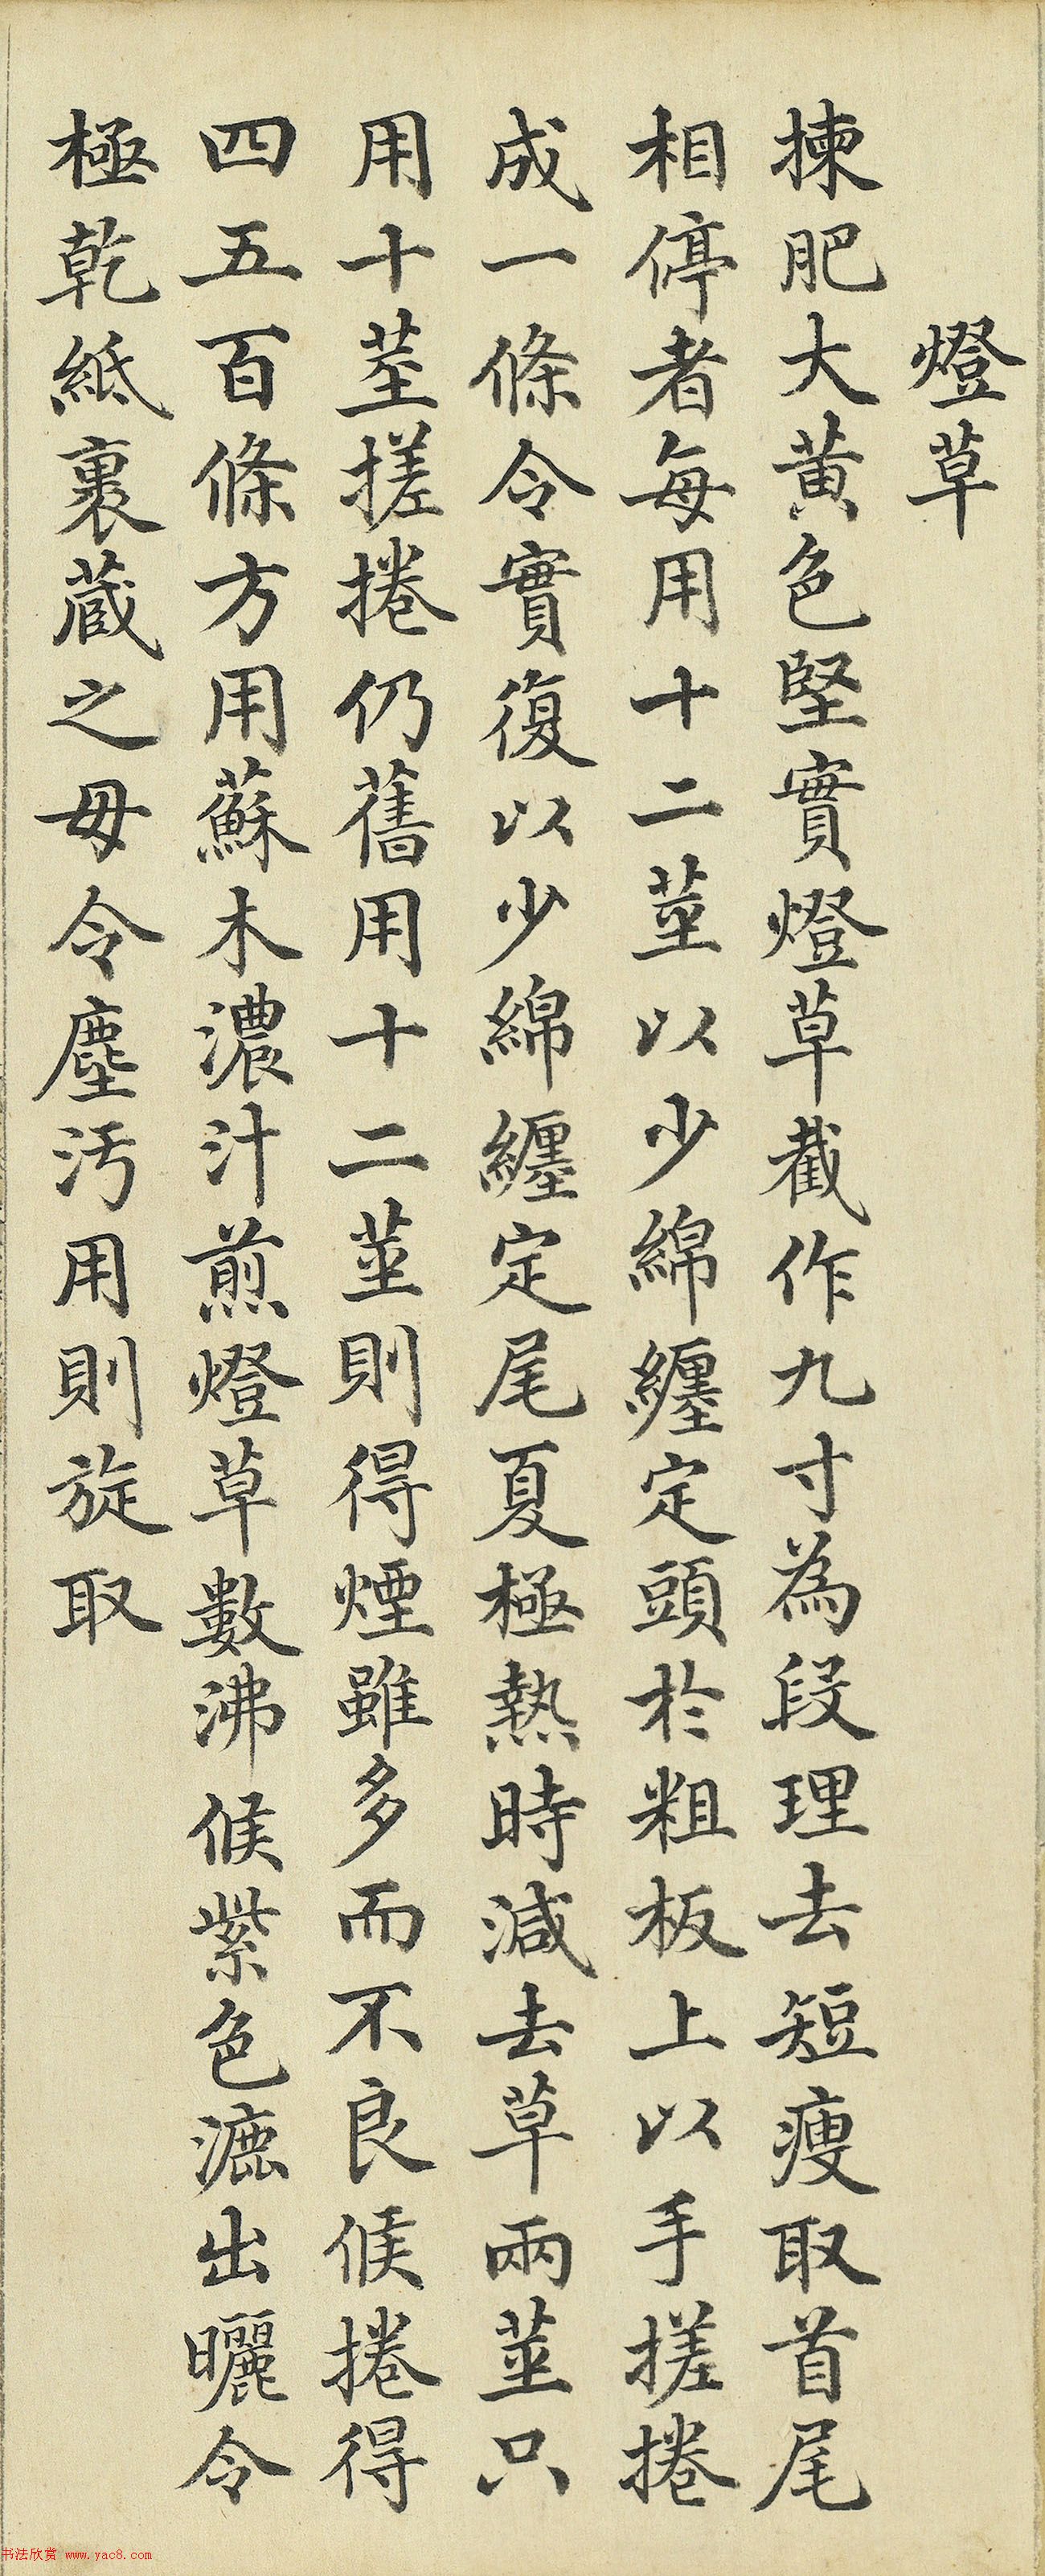 燈草
揀肥大黃色堅實燈草截作九寸為段理去短瘦取首尾
相停者每用十二莖以少綿纏定頭於粗板上以手搓捲
成一條令實復以少綿纏定尾夏極熱時減去草兩莖只
用十莖搓捲仍舊用十二莖則得煙雖多而不良候捲得
四五百條方用蘇木濃汁煎燈草數沸候紫色漉出曬令
極乾紙裹藏之毋令塵污用則旋取
书法欣赏 www.yac8.com